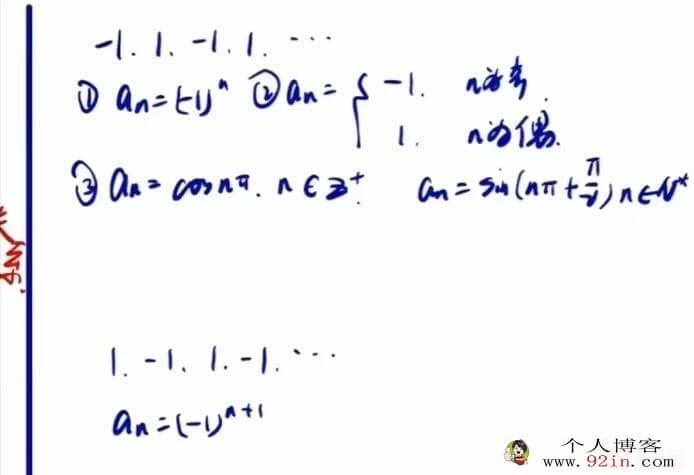 -1. 1. -1. 1. ...
① aₙ=(-1)ⁿ ② aₙ= { -1. n为奇.
1. n为偶.
③ aₙ=cosnπ. n∈Z⁺. aₙ=sin(nπ+π/2) n∈N*
1. -1. 1. -1. ...
aₙ=(-1)ⁿ⁺¹
个人博客
www.92in.com